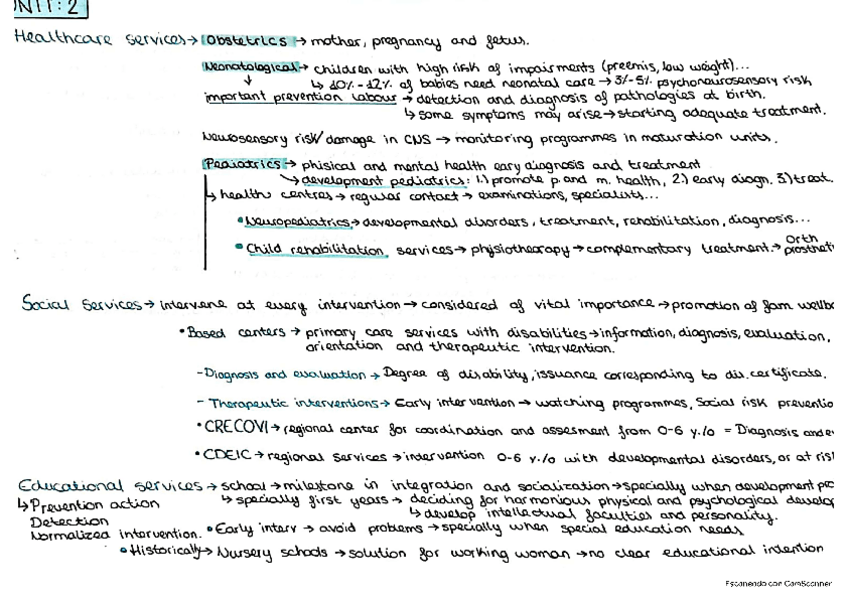 UNIT: 2
Healthcare services → Obstetrics → mother, pregnancy and fetus.
Neonatological → children with high risk of impairments (preemis, low weight)...
↓ ↳ 10% - 12% of babies need neonatal care → 3%-5% psychoneurosensory risk
important prevention labour → detection and diagnosis of pathologies at birth.
↳ some symptoms may arise → starting adequate treatment.
Neurosensory risk/damage in CNS → monitoring programmes in maturation units.
Pediatrics → phisical and mental health eary diagnosis and treatment
↳ development pediatrics: 1.) promote p. and m. health, 2.) early diagn. 3) treat.
↳ health centres → regular contact → examinations, specialists...
• Neuropediatrics → developmental disorders, treatment, rehabilitation, diagnosis...
• Child rehabilitation, services → physiotherapy → complementary treatment → Orth
prosthet
Social Services → intervene at every intervention → considered of vital importance → promotion of fam wellb
• Based centers → primary care services with disabilities → information, diagnosis, evaluation,
orientation and therapeutic intervention.
- Diagnosis and evaluation → Degree of disability, issuance corresponding to dis. certificate.
- Therapeutic interventions → Early intervention → watching programmes, Social risk preventio
• CRECOVI → regional center for coordination and assesment from 0-6 y./o = Diagnosis and ev
• CDEIC → regional services → intervention 0-6 y./o with developmental disorders, or at ris
Educational services → school → milestone in integration and socialization → specially when development
↳ Prevention action ↳ specially first years → deciding for harmonious physical and psychological develop
Detection ↳ develop intellectual faculties and personality.
Normalized intervention. • Early interv → avoid problems → specially when special education needs
• Historically → Nursery schools → solution for working woman → no clear educational intention
Escaneado con CamScanner